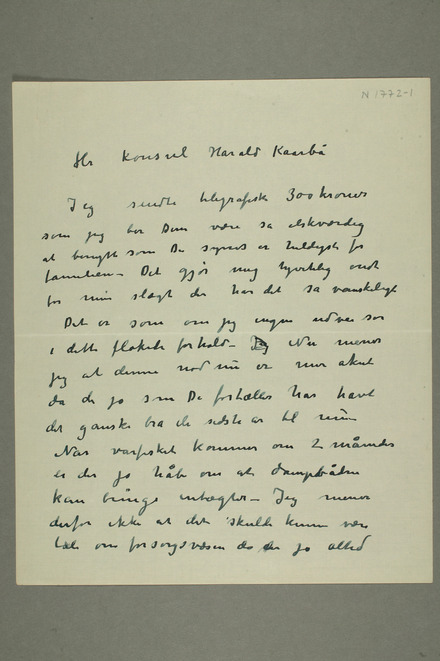 N 1772-1
Hr Konsul Harald Kaarbö
Jeg sendte telegrafisk 300 kroner
som jeg ber Dem være så elskværdig
at benytte som De synes er heldigst for
familien – Det gjør mig hjertelig ondt
for min slægt der har det så vanskeligt
Det er som om jeg ingen udvei ser
i dette flokede forhold – Nu mener
jeg at denne nød nu er mer akut
da de jo som De fortæller har havt
det ganske bra de sidste år til nu
Når vårfisket kommer om 2 måneder
er der jo håb om at dampbåden
kan bringe indtægter – Jeg mener
derfor ikke at det skulde kunne være
tale om forsorgsvæsen da de jo altid